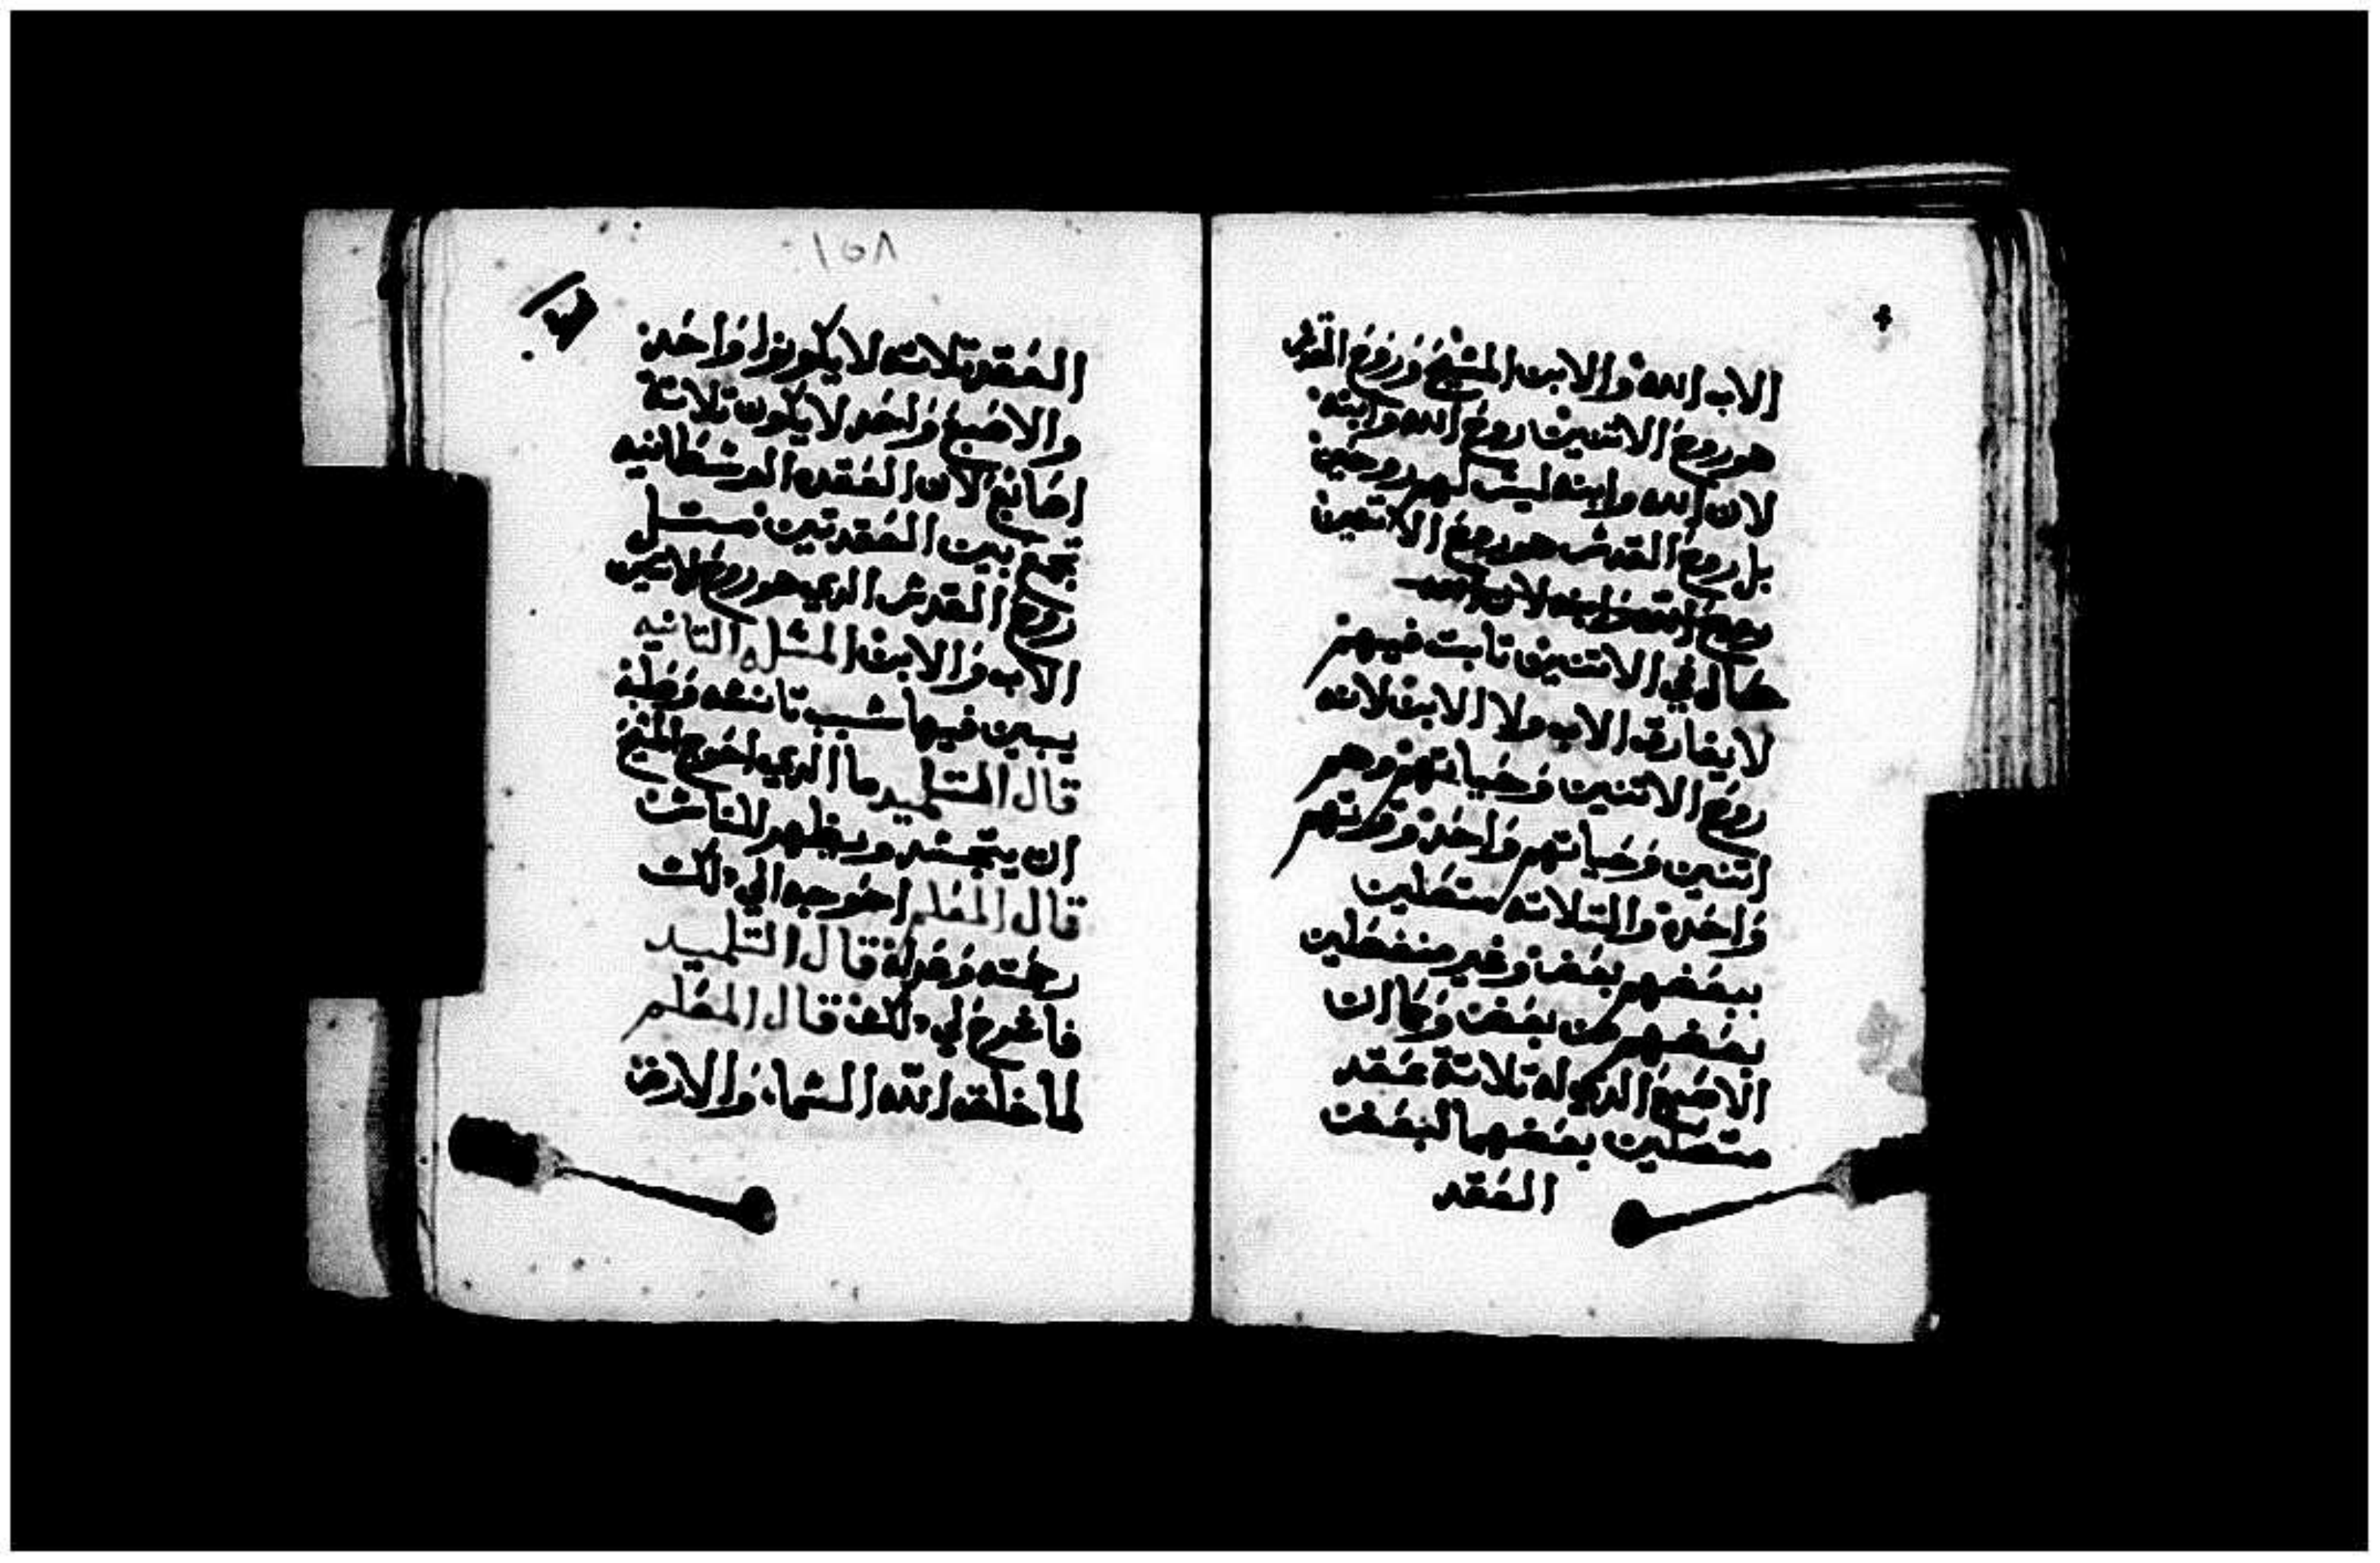 الاب الله والابن المسيح وروح القدس
هو روح الاتنين روح الله وابنه
لان الله وابنه ليس لهم روحين
بل روح القدس هو روح الاتنين
روح الله وابنه لان
حال في الاتنين تابت فيهم
لا يفارق الاب ولا الابن لانه
روح الاتنين وحياتهم وهم
اتنين وحياتهم واحدة وقوتهم
واحدة والتلاته متصلين
ببعضهم بعض وغير منفصلين
بعضهم من بعض وكما ان
الاصبع الدي له تلاتة عقد
متصلين بعضهما لبعض
العقد
١٥٨
العقد تلاته لا يكونوا واحدة
والاصبع واحد لا يكون تلاتة
اصابع لان العقده الوسطانيه
تجمع بين العقدتين متل
روح القدس الدي هو روح لاتنين
الاب والابن المسله التانيه
يبين فيها سبب تانسه وصلبه
قال التلميد ما الدي احوج المسيح
ان يتجسد ويظهر للناس
قال المعلم احوجه الي دلك
رحمته وعدله قال التلميد
فاشرح لي دلك قال المعلم
لما خلق الله السماء والارض